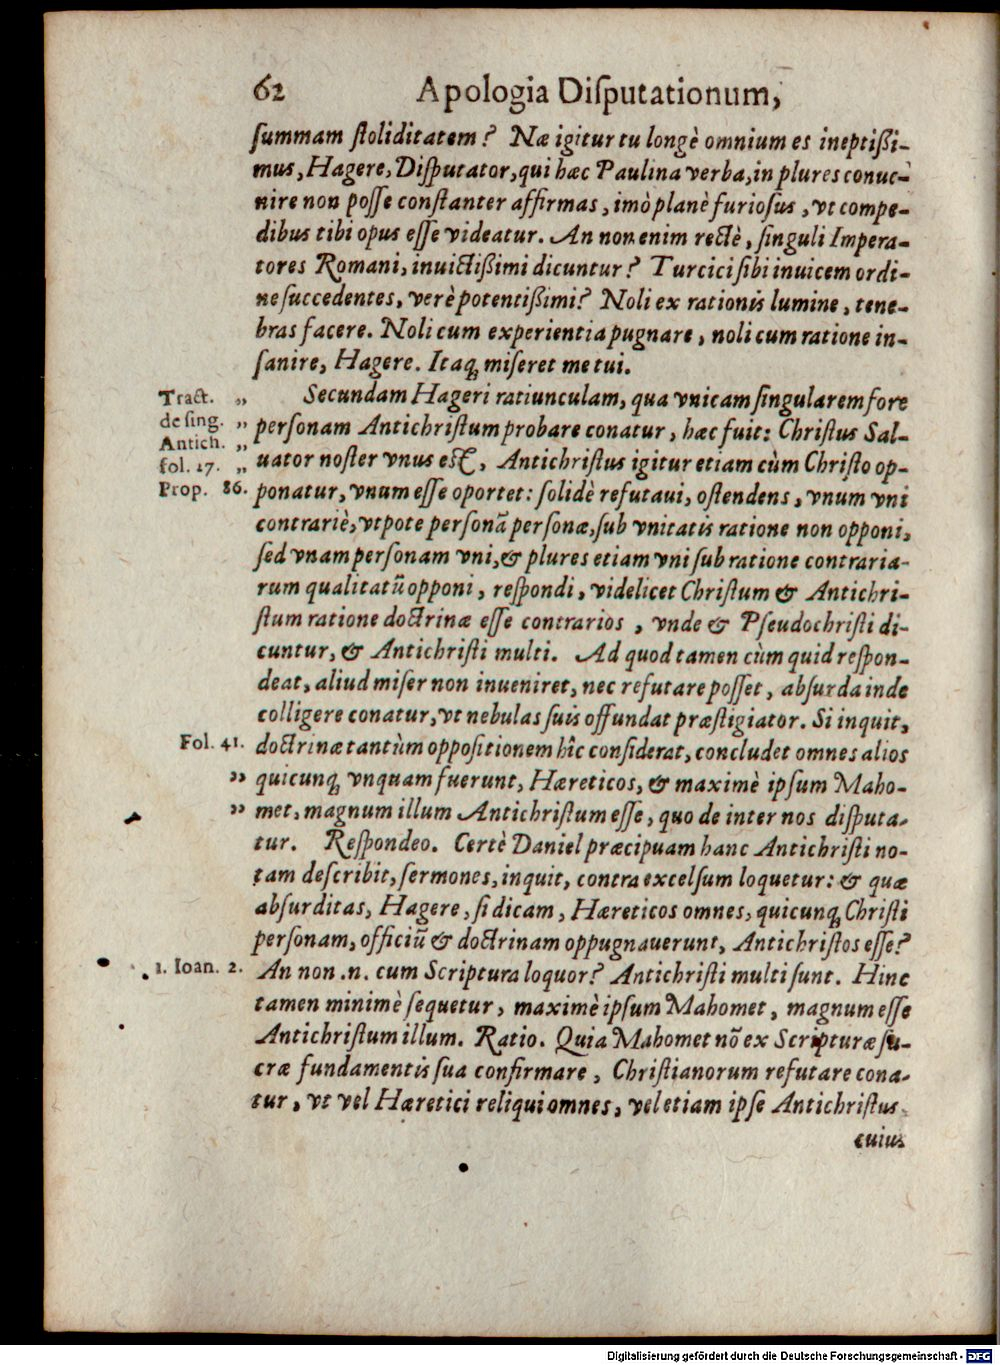 62 Apologia Diſputationum,
ſummam ſtoliditatem? Næ igitur tu longè omnium es ineptißi-
mus, Hagere, Diſputator, qui hæc Paulina verba, in plures conue-
nire non poſſe conſtanter affirmas, imò planè furioſus, vt compe-
dibus tibi opus eſſe videatur. An non enim rectè, ſinguli Impera-
tores Romani, inuictißimi dicuntur? Turcici ſibi inuicem ordi-
ne ſuccedentes, verè potentißimi? Noli ex rationis lumine, tene-
bras facere. Noli cum experientia pugnare, noli cum ratione in-
ſanire, Hagere. Itaq; miſeret me tui.
Tract. „ Secundam Hageri ratiunculam, qua vnicam ſingularem fore
de ſing. „ perſonam Antichriſtum probare conatur, hæc fuit: Chriſtus Sal-
Antich. „
fol. 17. „ uator noſter vnus eſt, Antichriſtus igitur etiam cùm Chriſto op-
Prop. 86. ponatur, vnum eſſe oportet: ſolidè refutaui, oſtendens, vnum vni
contrariè, vtpote perſonā perſonæ, ſub vnitatis ratione non opponi,
ſed vnam perſonam vni, & plures etiam vni ſub ratione contraria-
rum qualitatū opponi, reſpondi, videlicet Chriſtum & Antichri-
ſtum ratione doctrinæ eſſe contrarios, vnde & Pſeudochriſti di-
cuntur, & Antichriſti multi. Ad quod tamen cùm quid reſpon-
deat, aliud miſer non inueniret, nec refutare poſſet, abſurda inde
colligere conatur, vt nebulas ſuis offundat præſtigiator. Si inquit,
Fol. 41. doctrinæ tantùm oppoſitionem hîc conſiderat, concludet omnes alios
„ quicunq; vnquam fuerunt, Hæreticos, & maximè ipſum Maho-
„ met, magnum illum Antichriſtum eſſe, quo de inter nos diſputa-
tur. Reſpondeo. Certè Daniel præcipuam hanc Antichriſti no-
tam deſcribit, ſermones, inquit, contra excelſum loquetur: & quæ
abſurditas, Hagere, ſi dicam, Hæreticos omnes, quicunq; Chriſti
perſonam, officiū & doctrinam oppugnauerunt, Antichriſtos eſſe?
1. Ioan. 2. An non .n. cum Scriptura loquor? Antichriſti multi ſunt. Hinc
tamen minimè ſequetur, maximè ipſum Mahomet, magnum eſſe
Antichriſtum illum. Ratio. Quia Mahomet nō ex Scripturæ ſa-
cræ fundamentis ſua confirmare, Chriſtianorum refutare cona-
tur, vt vel Hæretici reliqui omnes, vel etiam ipſe Antichriſtus
cuius
Digitalisierung gefördert durch die Deutsche Forschungsgemeinschaft - DFG